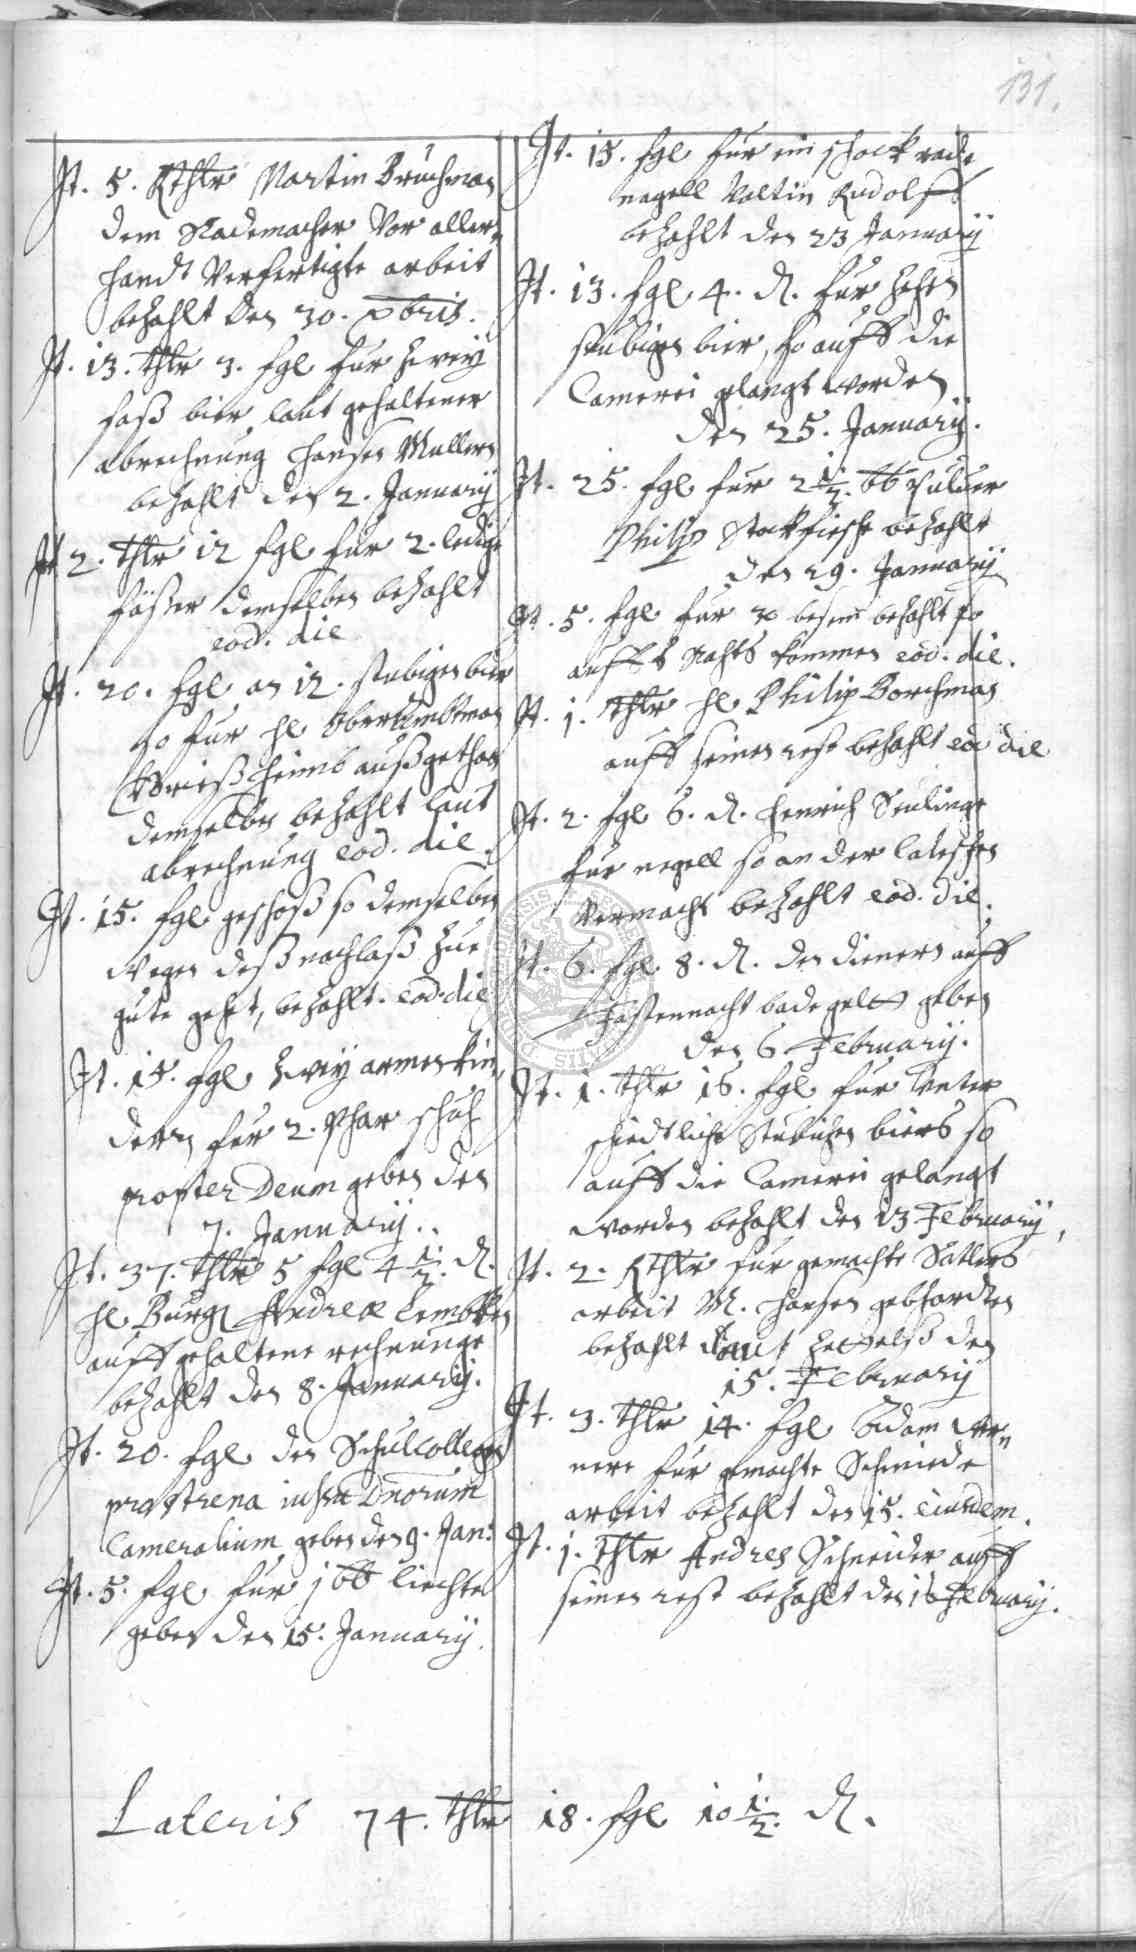 131.
It. 5. Rthlr Martin Bruchman
dem Rademacher Vor aller„
handt Verfertigte arbeit
bezahlt den 30. xbris.
It. 13. thlr 3. sgl fur zwey
faß bier laut gehaltener
abrechnung Hansen Mullern
bezahlt den 2. January
It 2. thlr 12 sgl fur 2. ledige
fäßer demselben bezahlt
eod. die
It. 20. sgl an 12. stubigen bier
so fur hl Oberambtman
heims außgethan
demselben bezahlt laut
abrechnung eod. die.
It. 15. sgl geschoß so demselben
wegen deß nachlaß zue
gute gehet, bezahlt. eod. die
It. 15. sgl zwey armen kin„
dern fur 2. Phar schuh
propter Deum geben den
7. January.
It. 37. thlr 5 sgl 4 1/2. d.
hl Burg Andreæ Lembken
auff gehaltene rechnunge
bezahlt den 8. January.
It. 20. sgl den Schulcollegen
pro strena iussu Dnorum
Cameralium geben den 9. Jan:
It. 5. sgl fur j lb liechte
geben den 15. January.
It. 15. sgl fur ein schock rade
nagell Valtin Rudolff
bezahlt den 23 January
It. 13. sgl 4. d. fur zehen
stubigen bier, so auff die
Camerei gelangt worden
den 25. January.
It. 25. sgl fur 2 1/2. lb Pulver
Philip Stockfische bezahlt
den 29. January
It. 5. sgl fur besem bezahlt so
auffs Rahts kommen eod. die.
It. j. thlr hl Philip Borchman
auff seinen rest bezahlt eod die
It. 2. sgl 6. d. Henrich Seulinge
fur negell so an der caleschen
Vermacht bezahlt eod. die.
It. 6. sgl 8. d. den dienern auff
Fastennacht bade gelt geben
den 6. February.
It. 1. thlr 16. sgl fur Unter
schiedtliche Stubichen biers so
auff die Camerei gelangt
worden bezahlt den 13 February,
It. 2. Rthlr fur gemachte Satlers
arbeit M. Hansen gebhardten
bezahlt laut zettelß den
15. February
It. 3. thlr 14. sgl Adam Wer„
nere fur gemachte Schmiede
arbeit bezahlt den 15. eiusdem.
It. j. thlr Andres Schneider auff
seinen rest bezahlt den 16 February.
Lateris 74. thlr 18. sgl 10 1/2. d.